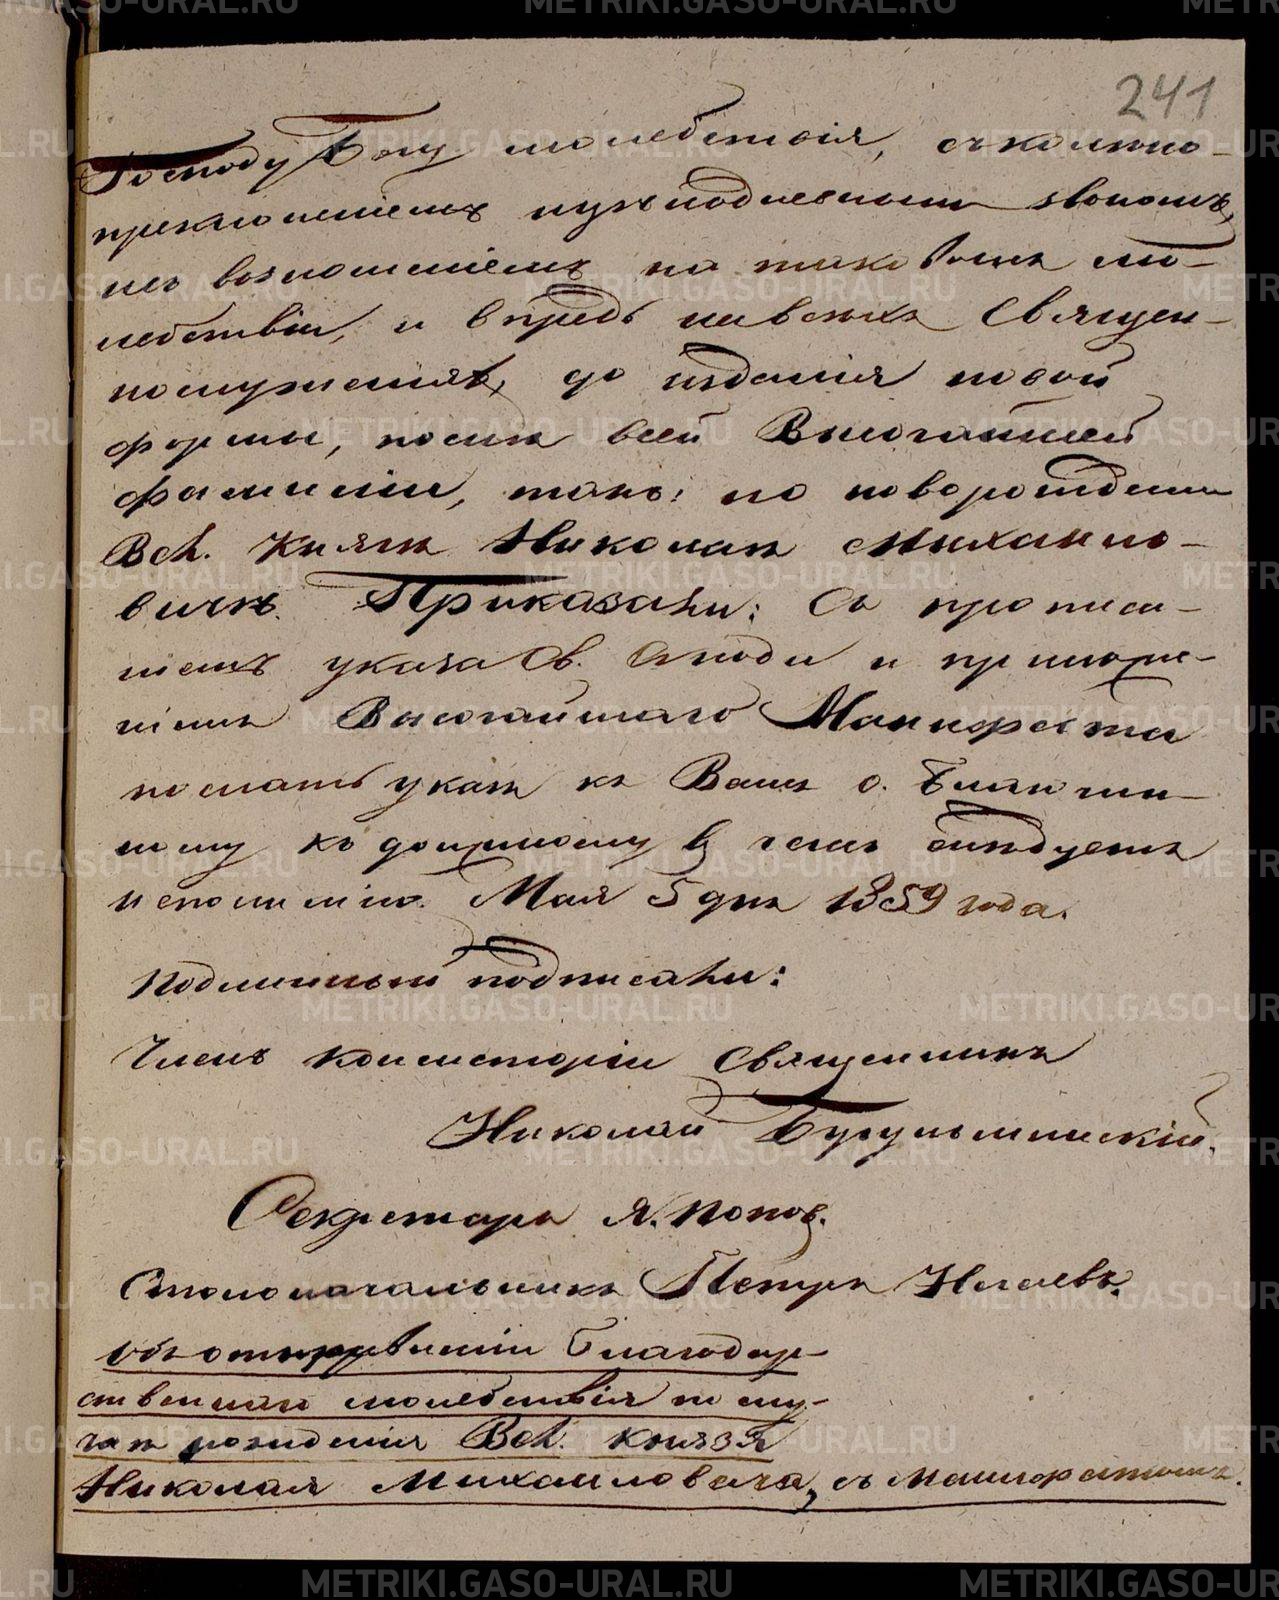 241
Господу Богу молебствія, съ колѣно-
преклоненіемъ и цѣлодневнымъ звономъ,
съ возношеніемъ на таковомъ мо-
лебствіи, и впредь на всѣхъ Священ-
нослуженіяхъ, до изданія новой
формы, послѣ всей Высочайшей
фамиліи, такъ: но новорожденномъ
Вел. Князѣ Николаѣ Михаило-
вичѣ. Приказали: Съ прописа-
ніемъ указа Св. Сѵнода и приложе-
ніемъ Высочайшаго Манифеста
послать указъ къ Вамъ о. Благочин-
ному къ должному въ чемъ слѣдуетъ
исполненію. Мая 5 дня 1859 года.
Подлинный подписали:
Членъ Консисторіи Священникъ
Николай Бугульминскій.
Секретарь Я. Попов.
Столоначальникъ Петръ
объ отправленіи Благодар-
ственнаго молебствія по слу-
чаю рожденія Вел. Князя
Николая Михаиловича, съ Манифестомъ.
METRIKI.GASO-URAL.RU